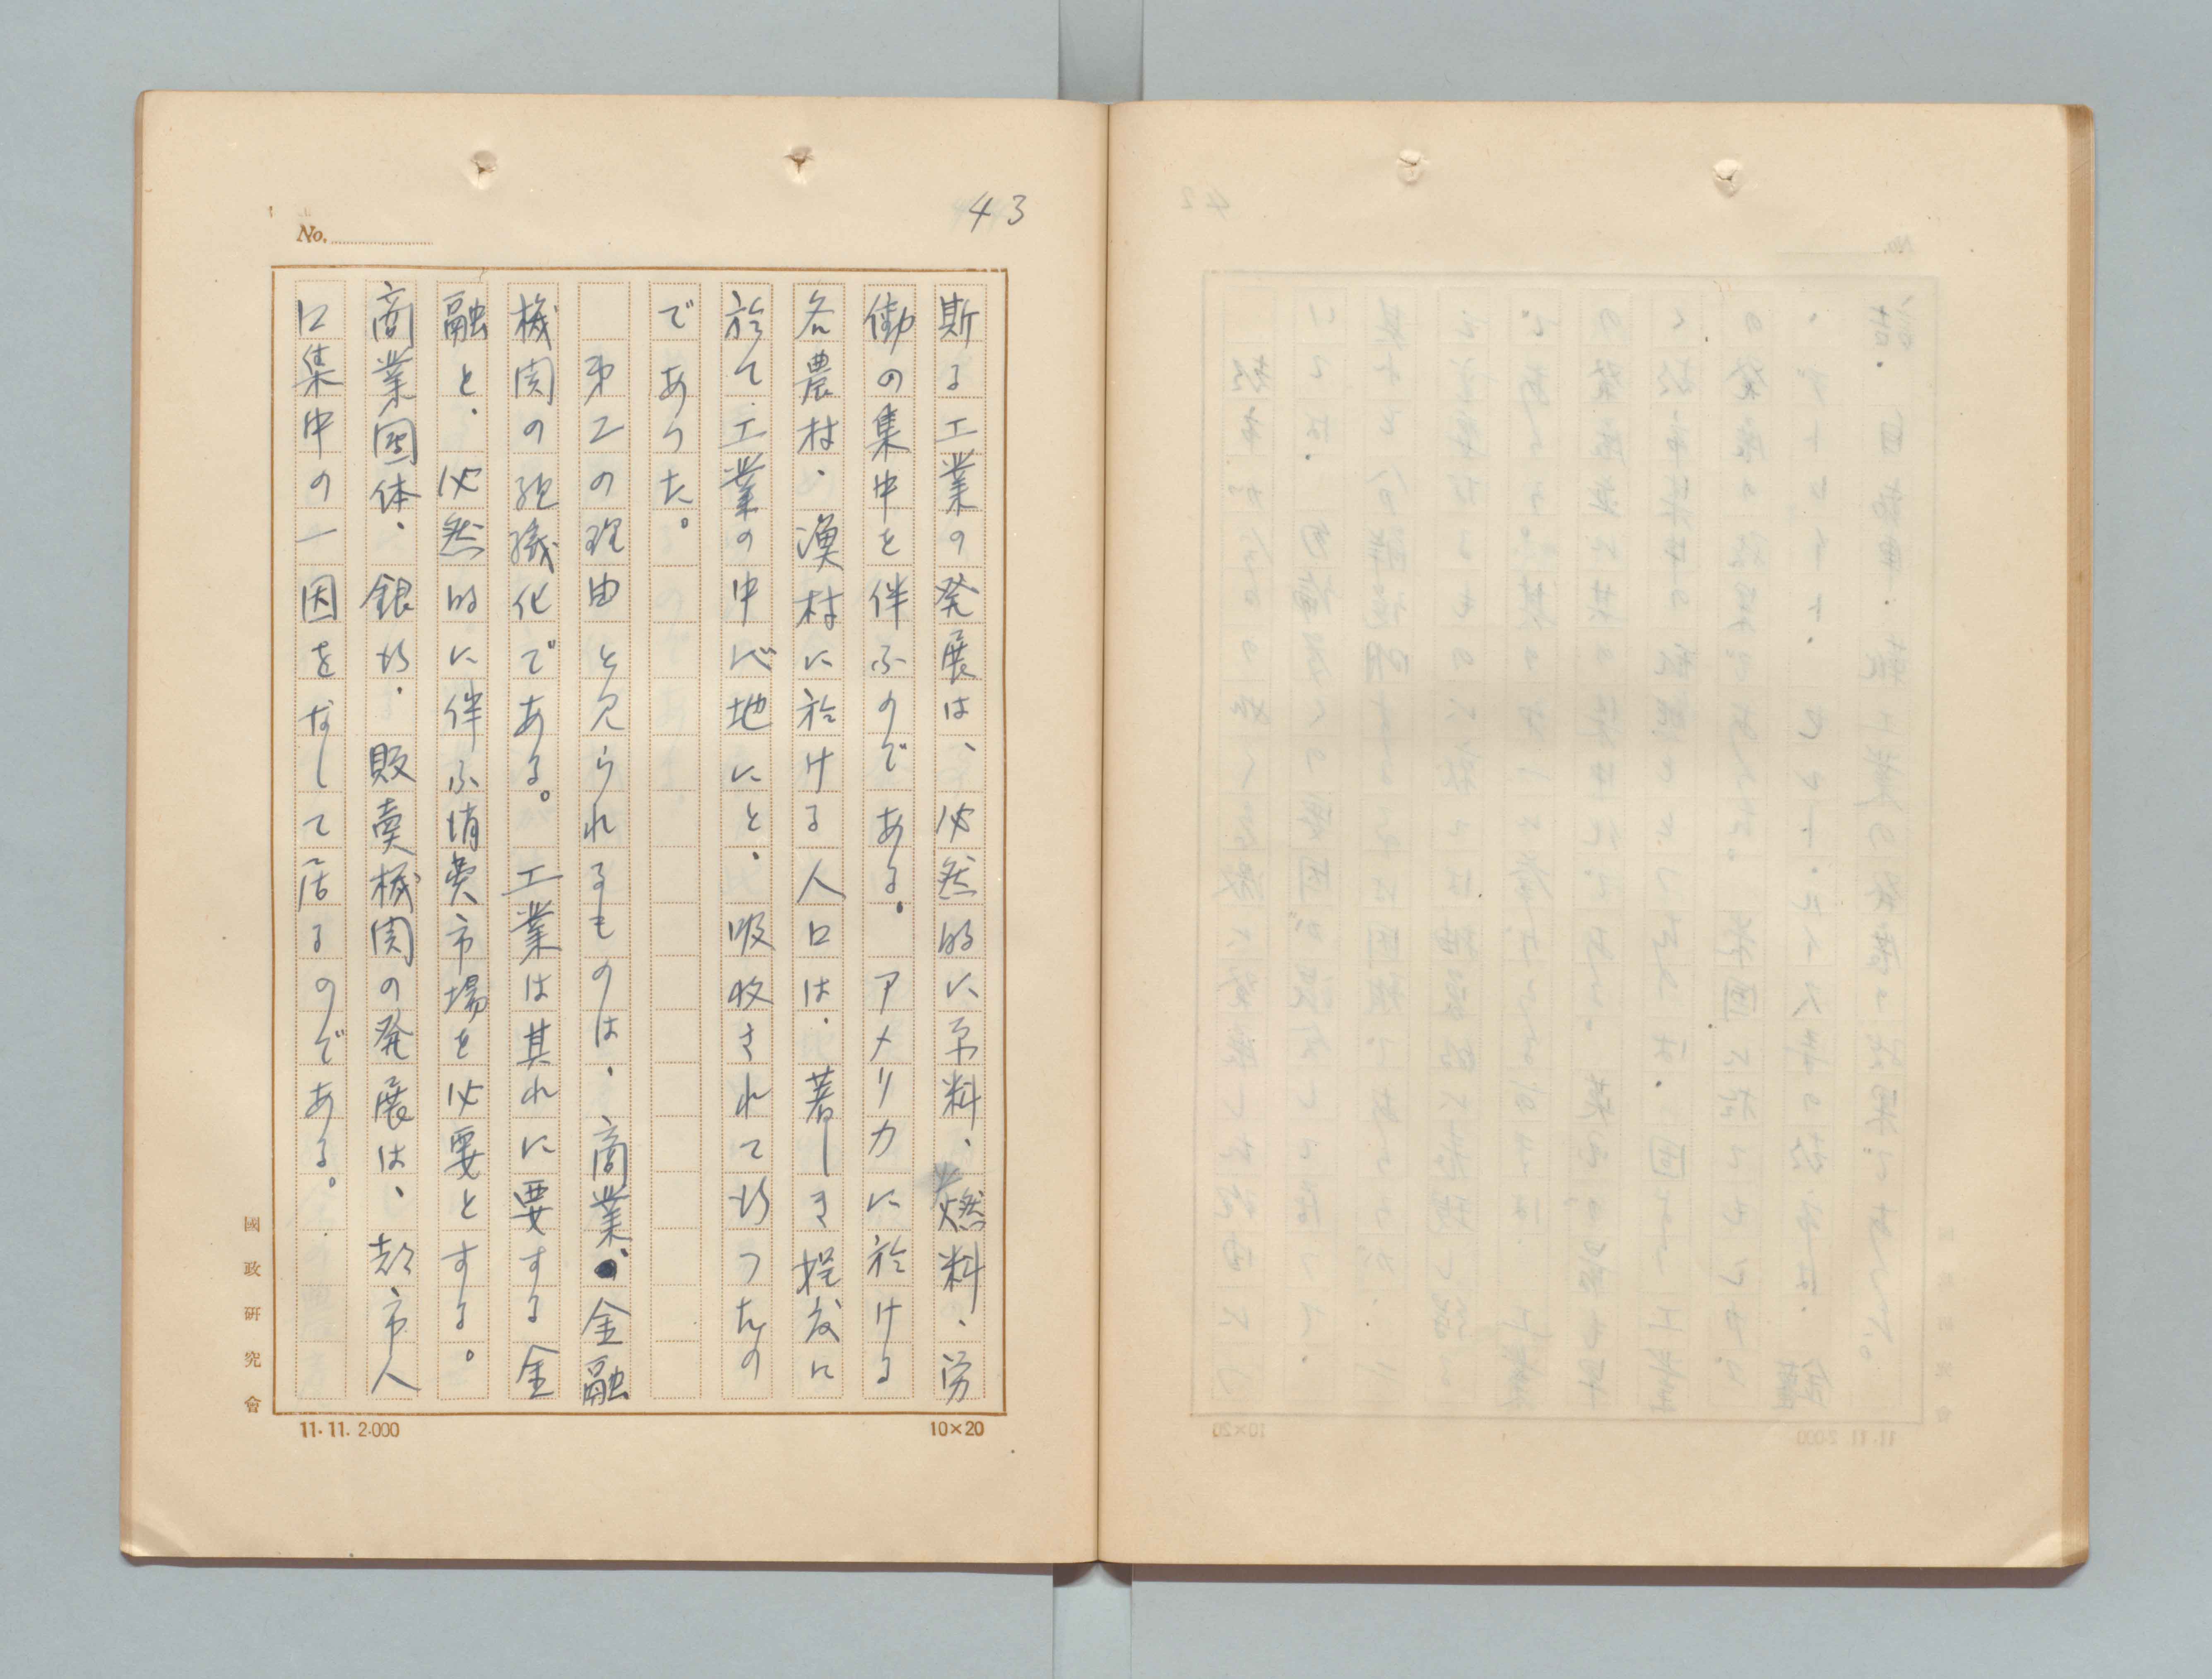 43
No.
斯る工業の発展は、必然的に原料、燃料、労
働の集中を伴ふのである。アメリカに於ける
各農村、漁村に於ける人口は、著しき程度に
於て、工業の中心地にと、吸收されて行つたの
であつた。
第二の理由と見られるものは、商業、金融
機関の組織化である。工業は其れに要する金
融と、必然的に伴ふ消費市場を必要とする。
商業団体、銀行、販売機関の発展は、都市人
口集中の一因をなして居るのである。
國政研究會
11.11.2.000
10×20